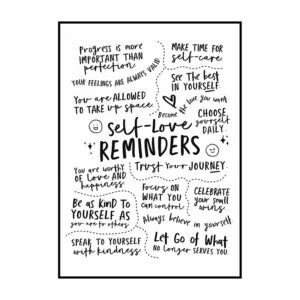 Progress is more
IMPORTANT THAN
perfection
MAKE TIME FOR
self-care
YOUR FEELINGS ARE ALWAYS VALID
See THE best
IN YOURSELF
You are ALLOWED
TO TAKE up SPACE
Become the love you want
CHOOSE
yourself
DAILY
self-Love
REMINDERS
You are worthy
OF LOVE AND
happiness
Trust Your JOURNEY
FOCUS ON
WHAT YOU
can control
CELEBRATE
your small
wins
Be as KIND TO
YOURSELF AS
you are to others
Always believe in yourself
SPEAK TO YOURSELF
with kindness
Let Go of What
NO LONGER SERVES YOU